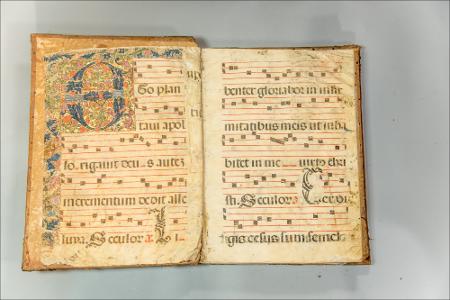 EGo plan
taui apol
lo. rigauit deu_s autez
incrementum dedit alle
luia. Seculor æ. Li
benter gloriabor in infir
mitatibus meis ut inha
bitet in me uirtus chri
sti. Seculor. Ter vir
gis cesus sum semel